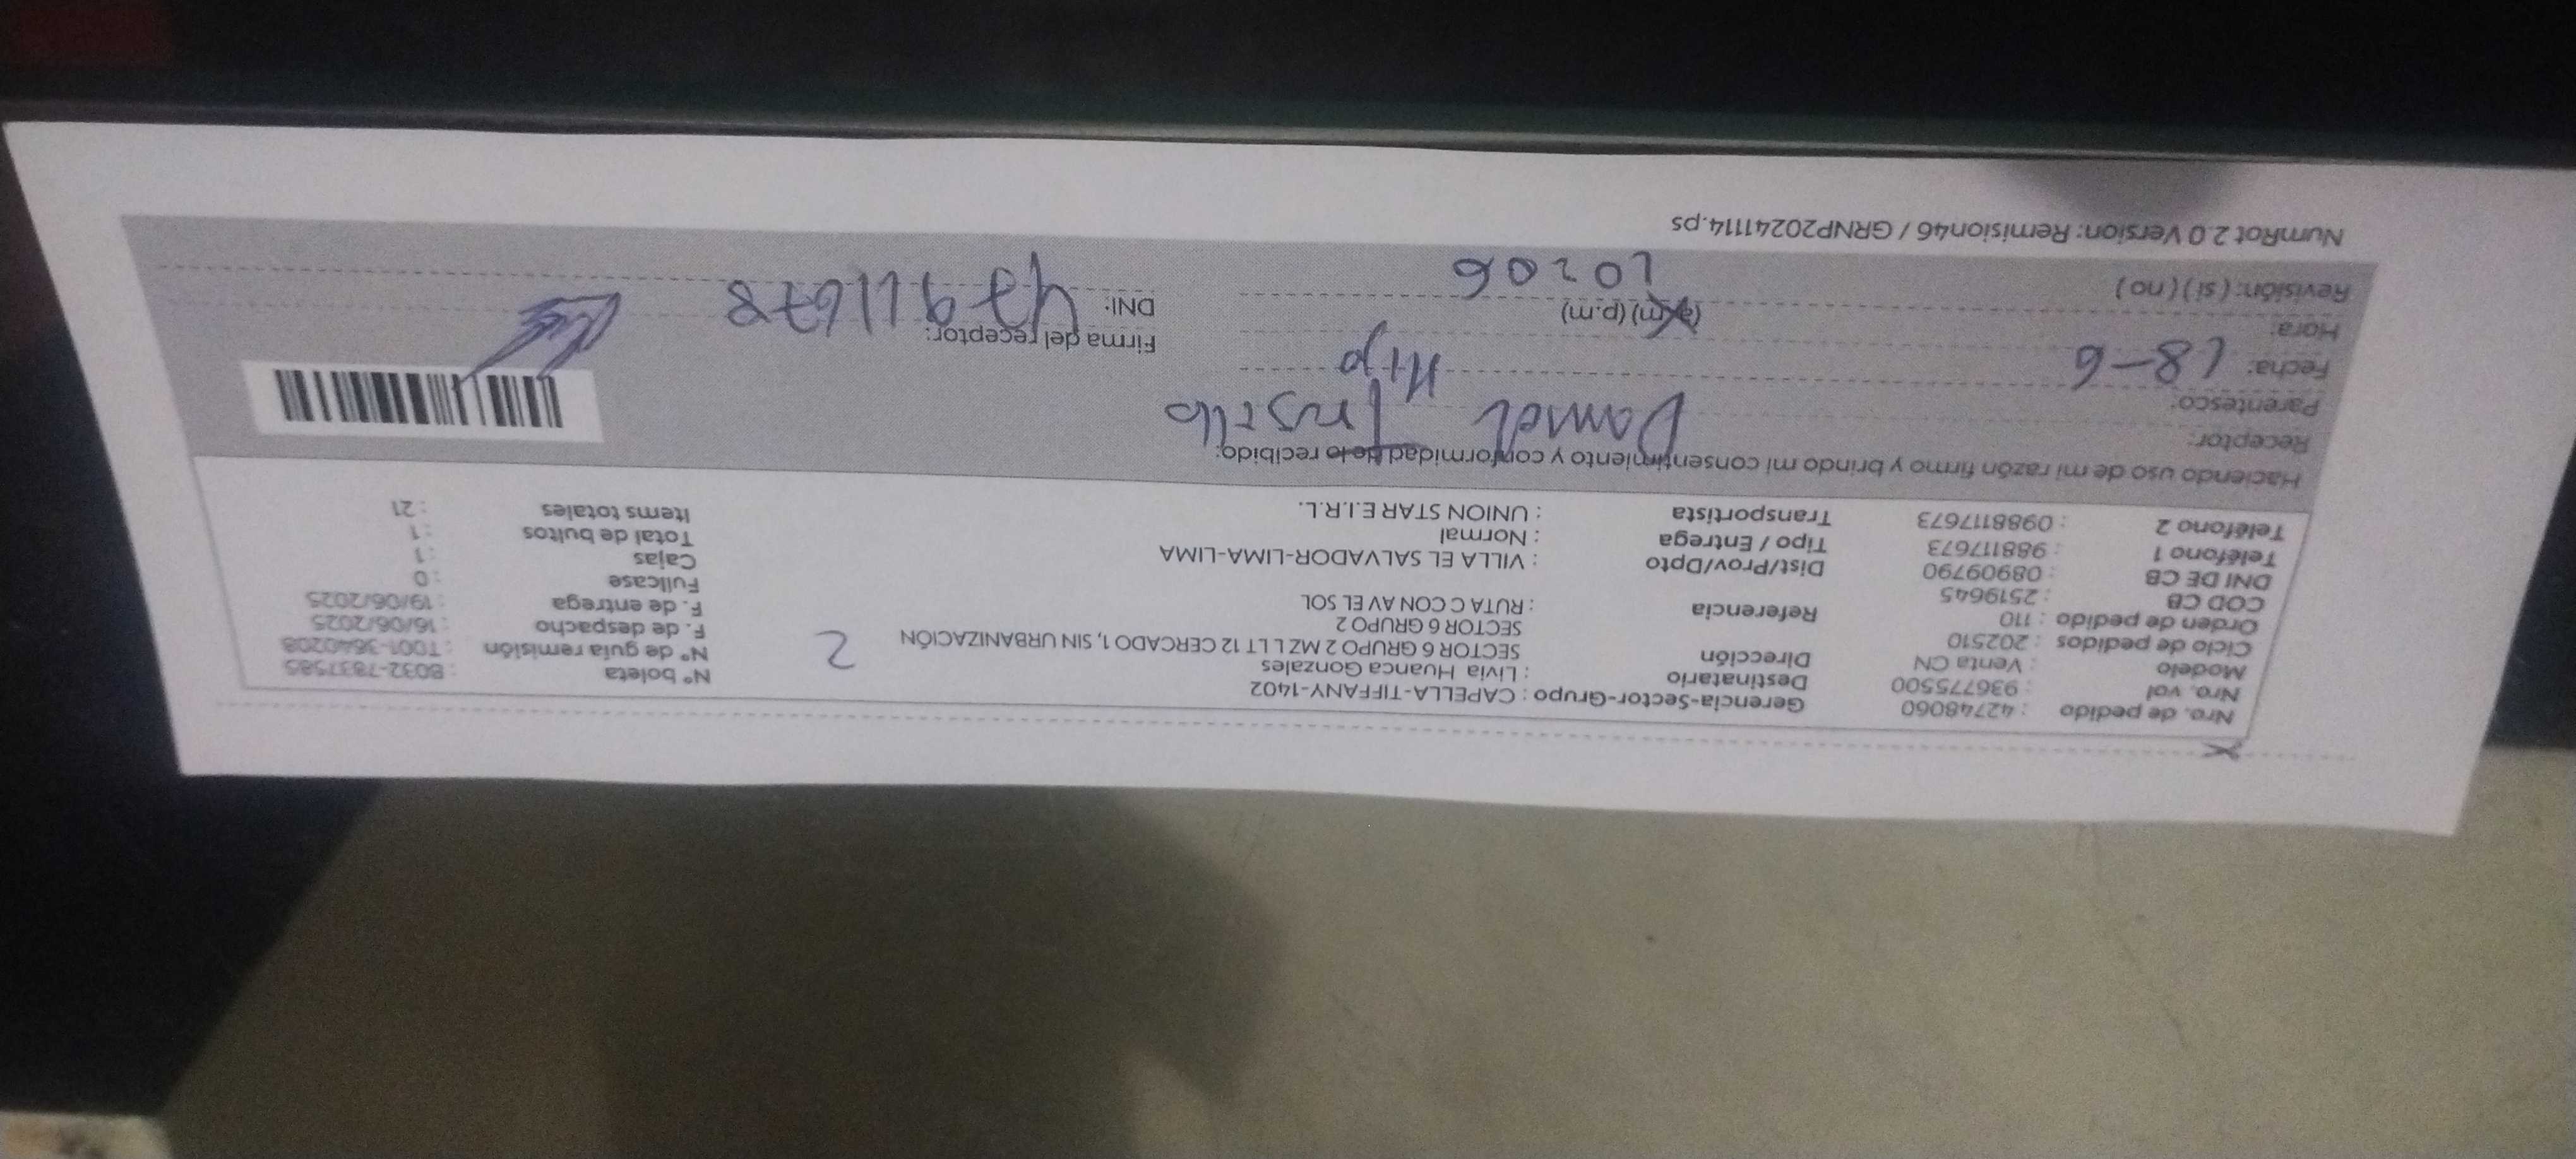 Nro. de pedido : 42748060
Nro. vol : 936775500
Modelo : Venta CN
Ciclo de pedidos : 202510
Orden de pedido : 110
COD CB : 2519645
DNI DE CB : 08909790
Teléfono 1 : 988117673
Teléfono 2 : 0988117673
Gerencia-Sector-Grupo : CAPELLA-TIFFANY-1402
Destinatario : Livia Huanca Gonzales
Dirección SECTOR 6 GRUPO 2 MZ L LT 12 CERCADO 1, SIN URBANIZACIÓN
SECTOR 6 GRUPO 2
Referencia : RUTA C CON AV EL SOL
Dist/Prov/Dpto : VILLA EL SALVADOR-LIMA-LIMA
Tipo / Entrega : Normal
Transportista : UNION STAR E.I.R.L.
2
N° boleta : B032-7837585
N° de guía remisión : T001-3640208
F. de despacho : 16/06/2025
F. de entrega : 19/06/2025
Fullcase : 0
Cajas : 1
Total de bultos : 1
Items totales : 21
Haciendo uso de mi razón firmo y brindo mi consentimiento y conformidad de lo recibido:
Receptor: Daniel
Parentesco: Hijo
Fecha: 18-6
Hora: (a.m) (p.m)
Revisión: ( si ) ( no )
10206
Firma del receptor:
DNI: 47911678
NumRot 2.0 Version: Remision46 / GRNP20241114.ps